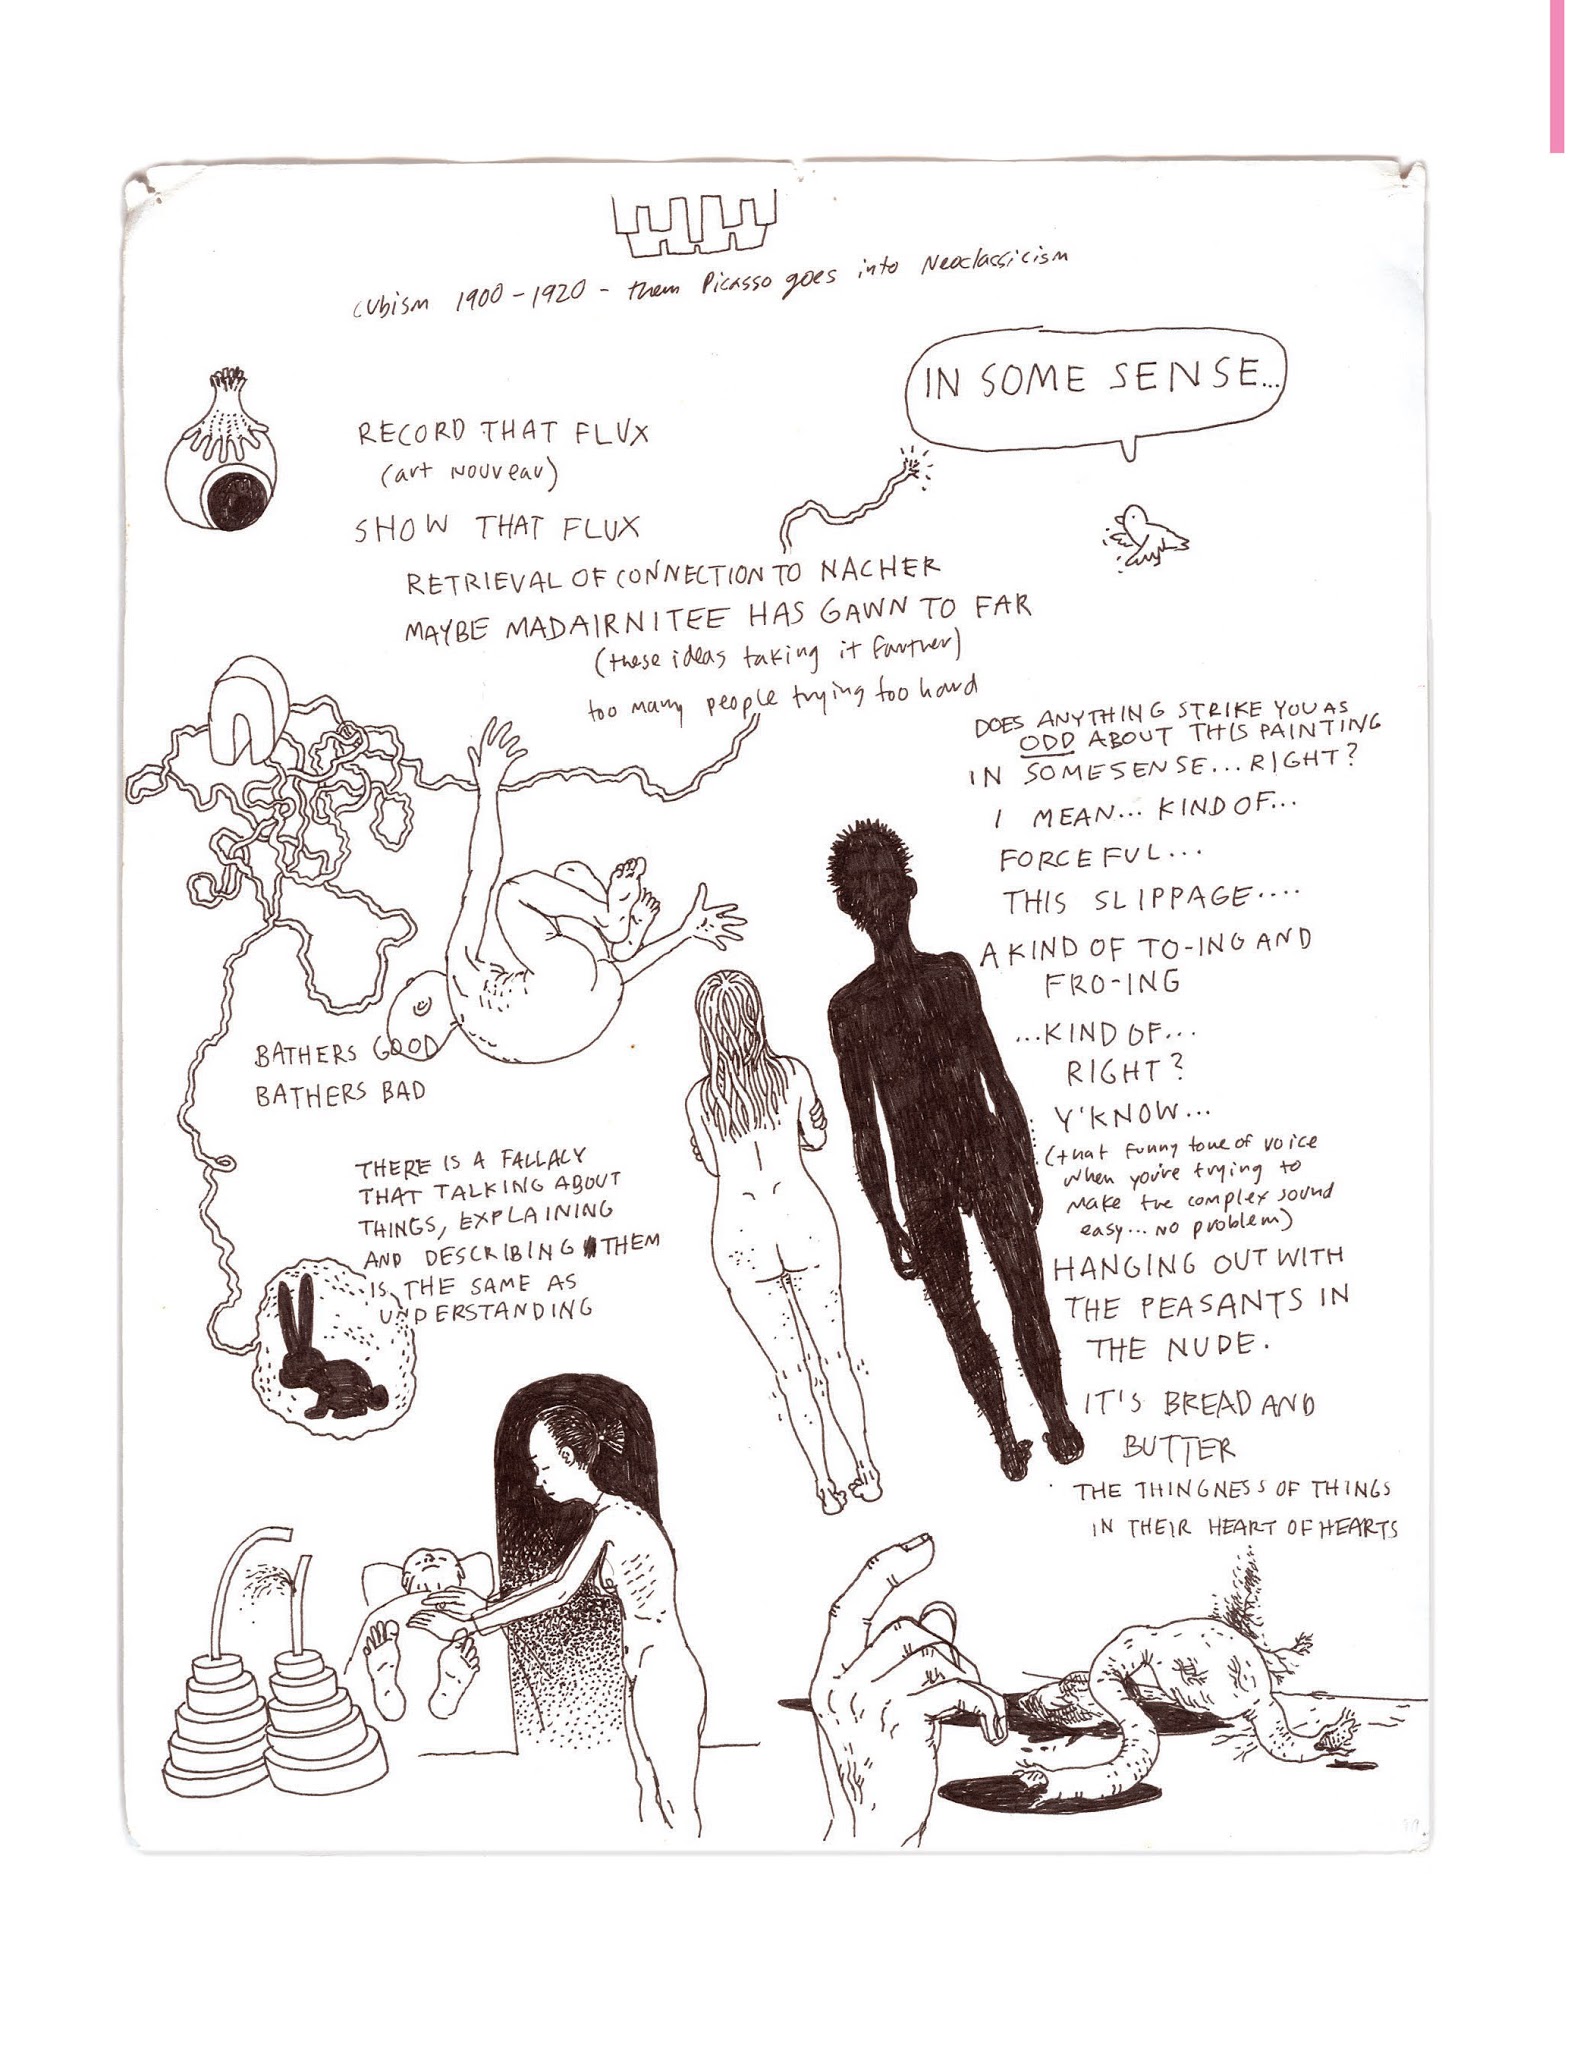 cubism 1900-1920 - then Picasso goes into Neoclassicism
IN SOME SENSE...
RECORD THAT FLUX
(art nouveau)
SHOW THAT FLUX
RETRIEVAL OF CONNECTION TO NACHER
MAYBE MADAIRNITEE HAS GAWN TO FAR
(these ideas taking it farther)
too many people trying too hard
DOES ANYTHING STRIKE YOU AS
ODD ABOUT THIS PAINTING
IN SOMESENSE... RIGHT?
I MEAN... KIND OF...
FORCEFUL...
THIS SLIPPAGE....
A KIND OF TO-ING AND
FRO-ING
...KIND OF...
RIGHT?
Y'KNOW...
(that funny tone of voice
when you're trying to
make the complex sound
easy... no problem)
HANGING OUT WITH
THE PEASANTS IN
THE NUDE.
IT'S BREAD AND
BUTTER
THE THINGNESS OF THINGS
IN THEIR HEART OF HEARTS
BATHERS GOOD
BATHERS BAD
THERE IS A FALLACY
THAT TALKING ABOUT
THINGS, EXPLAINING
AND DESCRIBING THEM
IS THE SAME AS
UNDERSTANDING